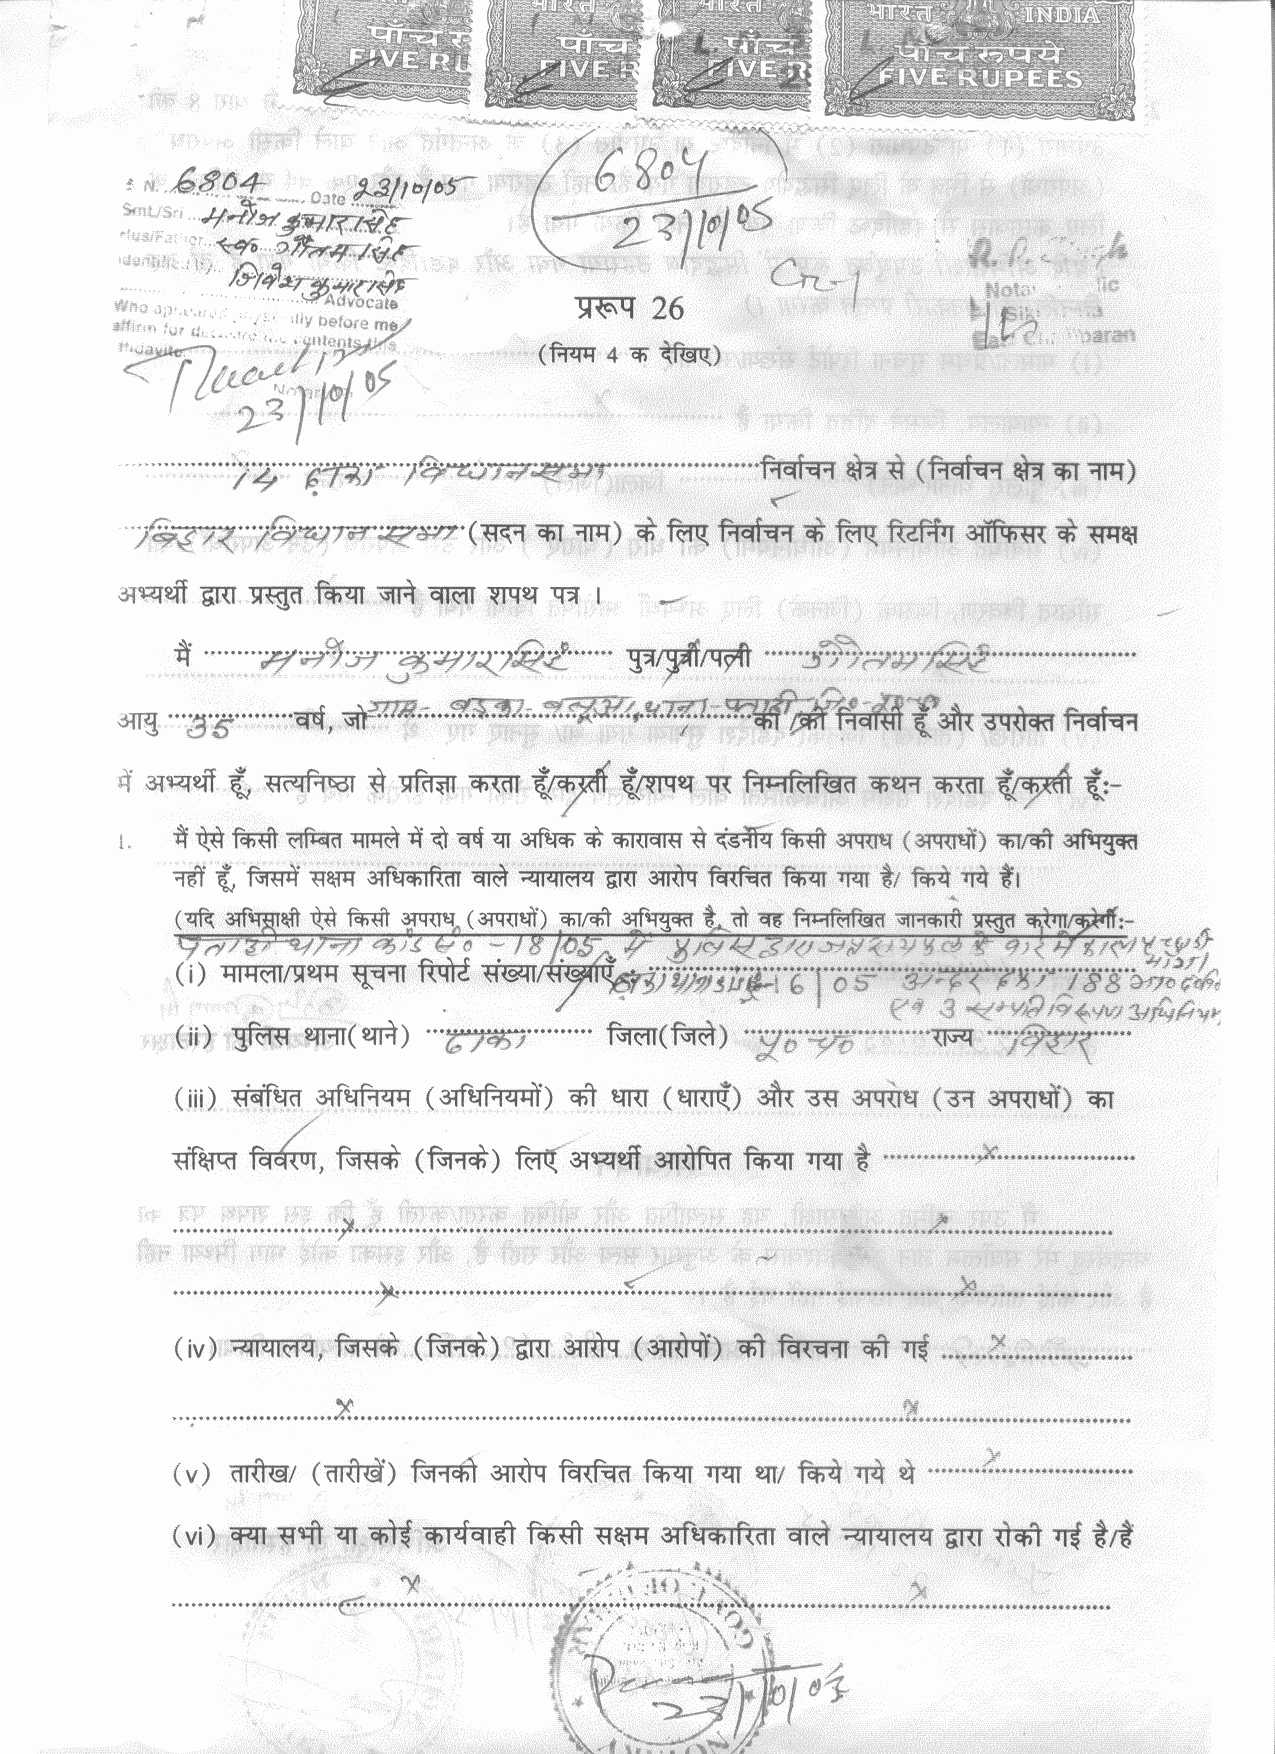 भारत INDIA
पाँच रुपये
FIVE RUPEES
6804
23/10/05
S. N. 6804 Date 23/10/05
Smt./Sri मनोज कुमार सिंह
स्व० गौतम सिंह
शिवेश कुमार सिंह
Advocate
Who appeared personally before me
affirm for declare the contents this
23/10/05
प्ररूप 26
(नियम 4 क देखिए)
14 ढ़ाका विधानसभा निर्वाचन क्षेत्र से (निर्वाचन क्षेत्र का नाम)
बिहार विधान सभा (सदन का नाम) के लिए निर्वाचन के लिए रिटर्निंग ऑफिसर के समक्ष
अभ्यर्थी द्वारा प्रस्तुत किया जाने वाला शपथ पत्र ।
मैं मनोज कुमार सिंह पुत्र/पुत्री/पत्नी गौतम सिंह
ग्राम- बड़का- बलुआ, थाना- पताही, जि०- पू०-च०
आयु 35 वर्ष, जो का /की निवासी हूँ और उपरोक्त निर्वाचन
में अभ्यर्थी हूँ, सत्यनिष्ठा से प्रतिज्ञा करता हूँ/करती हूँ/शपथ पर निम्नलिखित कथन करता हूँ/करती हूँ:-
1. मैं ऐसे किसी लम्बित मामले में दो वर्ष या अधिक के कारावास से दंडनीय किसी अपराध (अपराधों) का/की अभियुक्त
नहीं हूँ, जिसमें सक्षम अधिकारिता वाले न्यायालय द्वारा आरोप विरचित किया गया है/ किये गये हैं।
(यदि अभिसाक्षी ऐसे किसी अपराध (अपराधों) का/की अभियुक्त है, तो वह निम्नलिखित जानकारी प्रस्तुत करेगा/करेगी:-
पताही थाना कांड सं० - 18/05 में पुलिस द्वारा
(i) मामला/प्रथम सूचना रिपोर्ट संख्या/संख्याएँ 16/05 अन्दर दफा 188 भा० द० वि०
एवं 3 सम्पति विरूपण अधिनियम
(ii) पुलिस थाना(थाने) ढाका जिला(जिले) पू० च० राज्य बिहार
(iii) संबंधित अधिनियम (अधिनियमों) की धारा (धाराएँ) और उस अपराध (उन अपराधों) का
संक्षिप्त विवरण, जिसके (जिनके) लिए अभ्यर्थी आरोपित किया गया है x
x x
x x
(iv) न्यायालय, जिसके (जिनके) द्वारा आरोप (आरोपों) की विरचना की गई x
x x
(v) तारीख/ (तारीखें) जिनको आरोप विरचित किया गया था/ किये गये थे x
(vi) क्या सभी या कोई कार्यवाही किसी सक्षम अधिकारिता वाले न्यायालय द्वारा रोकी गई है/हैं
x x
23/10/05